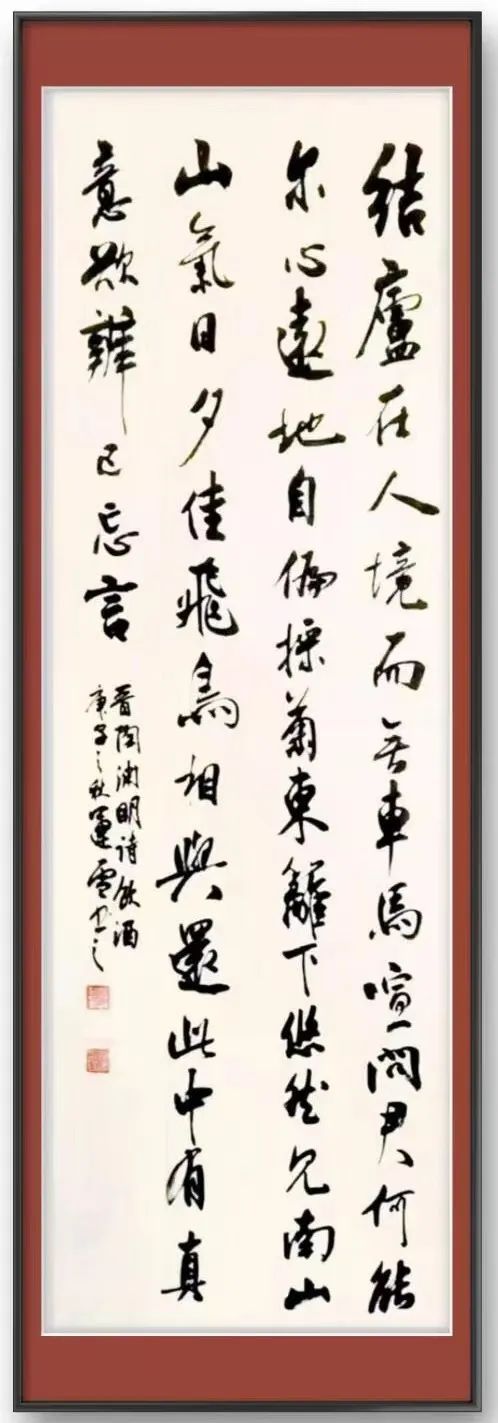 結廬在人境而無車馬喧問君何能
尔心遠地自偏採菊東籬下悠然見南山
山氣日夕佳飛鳥相與還此中有真
意欲辯已忘言
晋陶渊明詩飲酒
庚子之秋書之